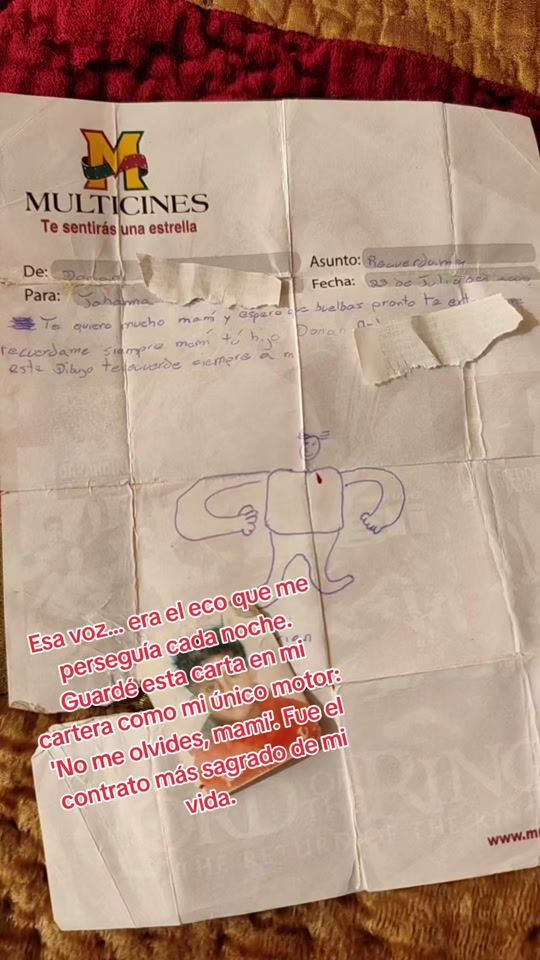 M
MULTICINES
Te sentirás una estrella
De: Dorian
Asunto: Recuerdame
Para: Johanna
Fecha: 23 de Julio del
Te quiero mucho mamí y espero que buelbas pronto te
recuerdame siempre mamí tú hijo Dorian
este Dibujo te recuerde siempre a m
Esa voz... era el eco que me
perseguía cada noche.
Guardé esta carta en mi
cartera como mi único motor:
'No me olvides, mami'. Fue el
contrato más sagrado de mi
vida.
THE RETURN OF THE
www.m